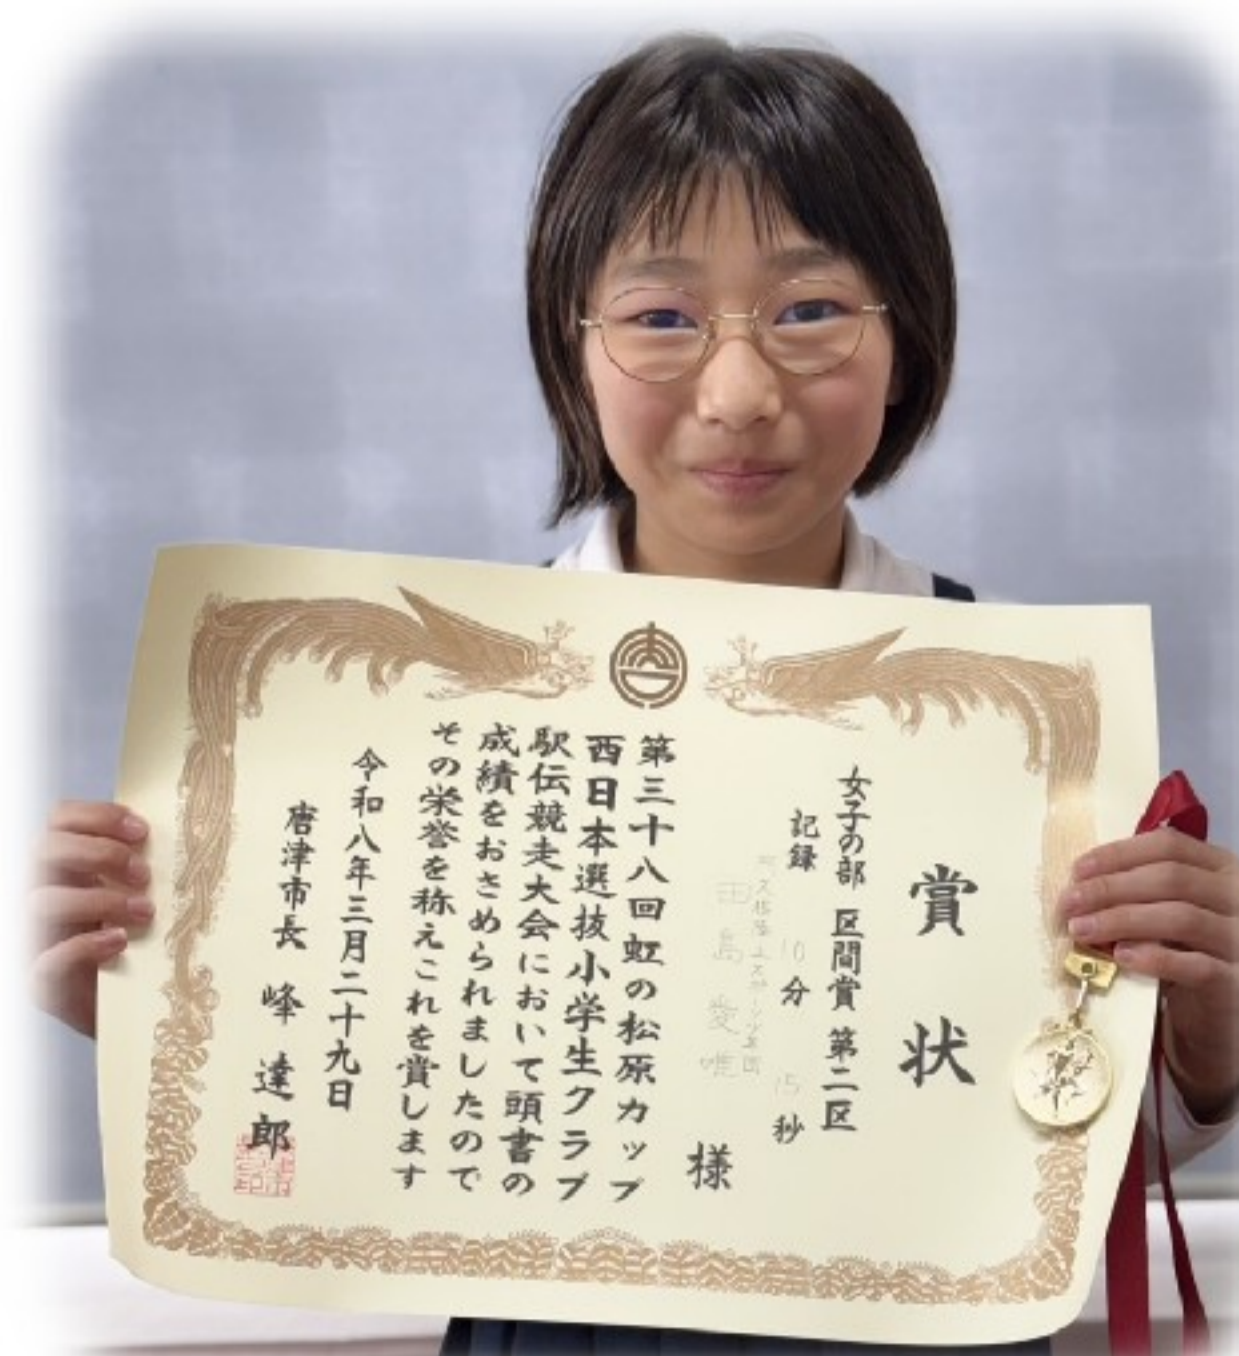 賞状
女子の部 区間賞 第二区
記録 10分 15秒
田島愛唯 様
第三十八回虹の松原カップ
西日本選抜小学生クラブ
駅伝競走大会において頭書の
成績をおさめられましたので
その栄誉を称えこれを賞します
令和八年三月二十九日
唐津市長 峰達郎